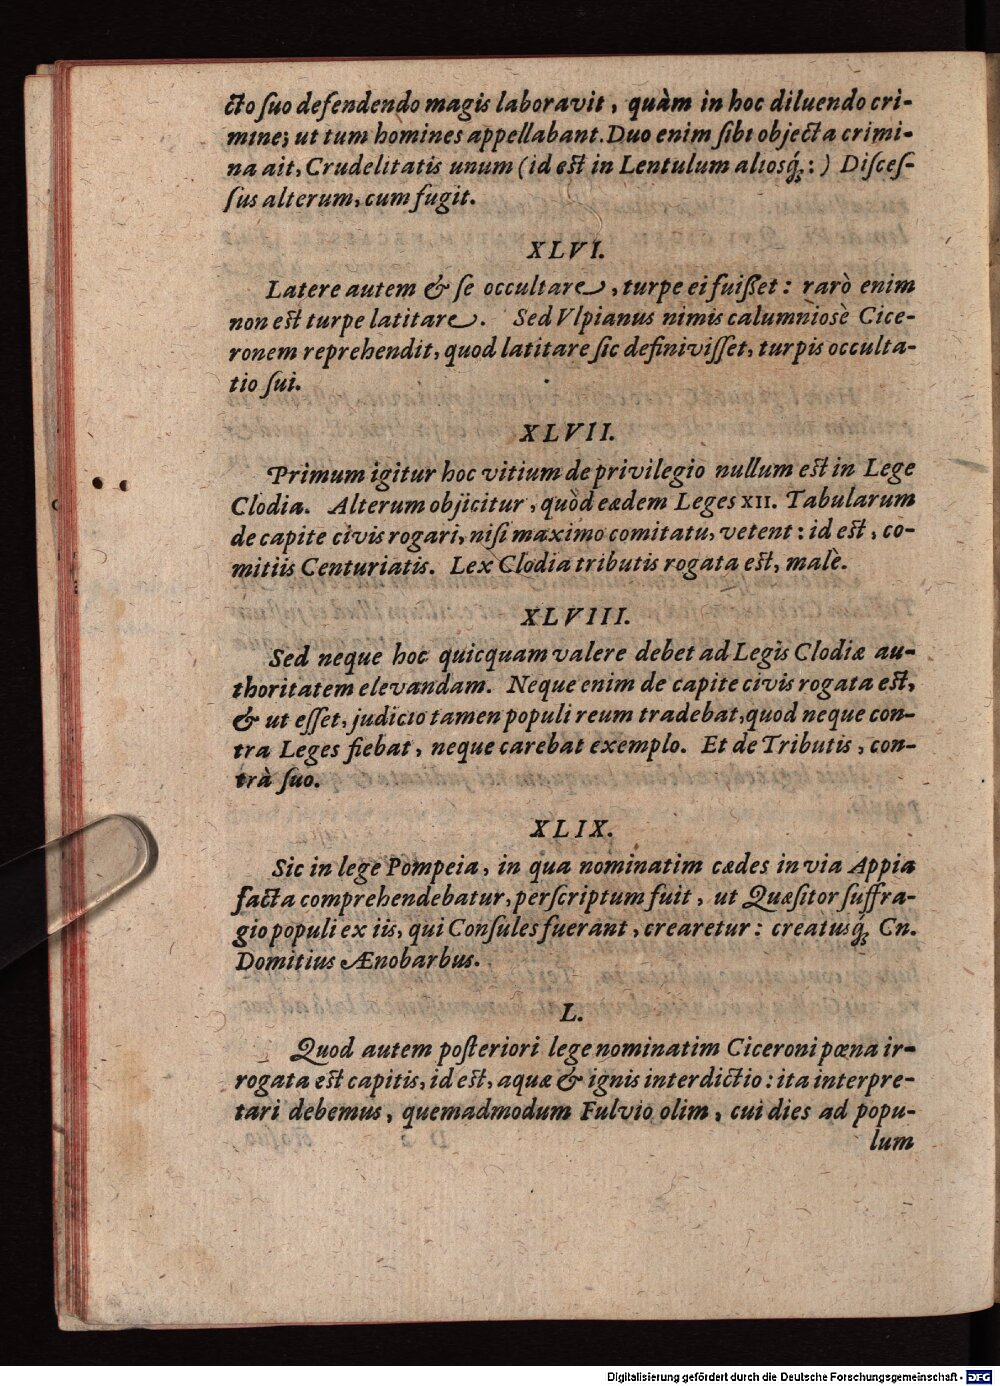 cto ſuo defendendo magis laboravit, quàm in hoc diluendo cri-
mine; ut tum homines appellabant. Duo enim ſibi objecta crimi-
na ait, Crudelitatis unum (id est in Lentulum aliosq́;:) Diſceſ-
ſus alterum, cum fugit.
XLVI.
Latere autem & ſe occultare, turpe ei fuißet: rarò enim
non est turpe latitare. Sed Vlpianus nimis calumniosè Cice-
ronem reprehendit, quod latitare ſic definiviſſet, turpis occulta-
tio ſui.
XLVII.
Primum igitur hoc vitium de privilegio nullum est in Lege
Clodia. Alterum objicitur, quòd eædem Leges XII. Tabularum
de capite civis rogari, niſi maximo comitatu, vetent: id est, co-
mitiis Centuriatis. Lex Clodia tributis rogata est, malè.
XLVIII.
Sed neque hoc quicquam valere debet ad Legis Clodiæ au-
thoritatem elevandam. Neque enim de capite civis rogata est,
& ut eſſet, judicio tamen populi reum tradebat, quod neque con-
tra Leges fiebat, neque carebat exemplo. Et de Tributis, con-
trà ſuo.
XLIX.
Sic in lege Pompeia, in qua nominatim cædes in via Appia
facta comprehendebatur, perſcriptum fuit, ut Quæſitor ſuffra-
gio populi ex iis, qui Conſules fuerant, crearetur: creatusq́; Cn.
Domitius Ænobarbus.
L.
Quod autem poſteriori lege nominatim Ciceroni pœna ir-
rogata est capitis, id est, aquæ & ignis interdictio: ita interpre-
tari debemus, quemadmodum Fulvio olim, cui dies ad popu-
lum
Digitalisierung gefördert durch die Deutsche Forschungsgemeinschaft - DFG